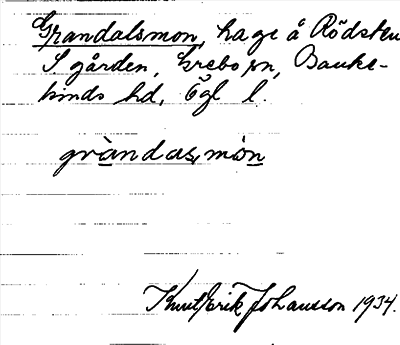 Grandalsmon, hage å Rödsten
S gården, Grebo sn, Banke-
kinds hd, Ögl l.
gràndas,mòn
Knut Erik Johansson 1934.